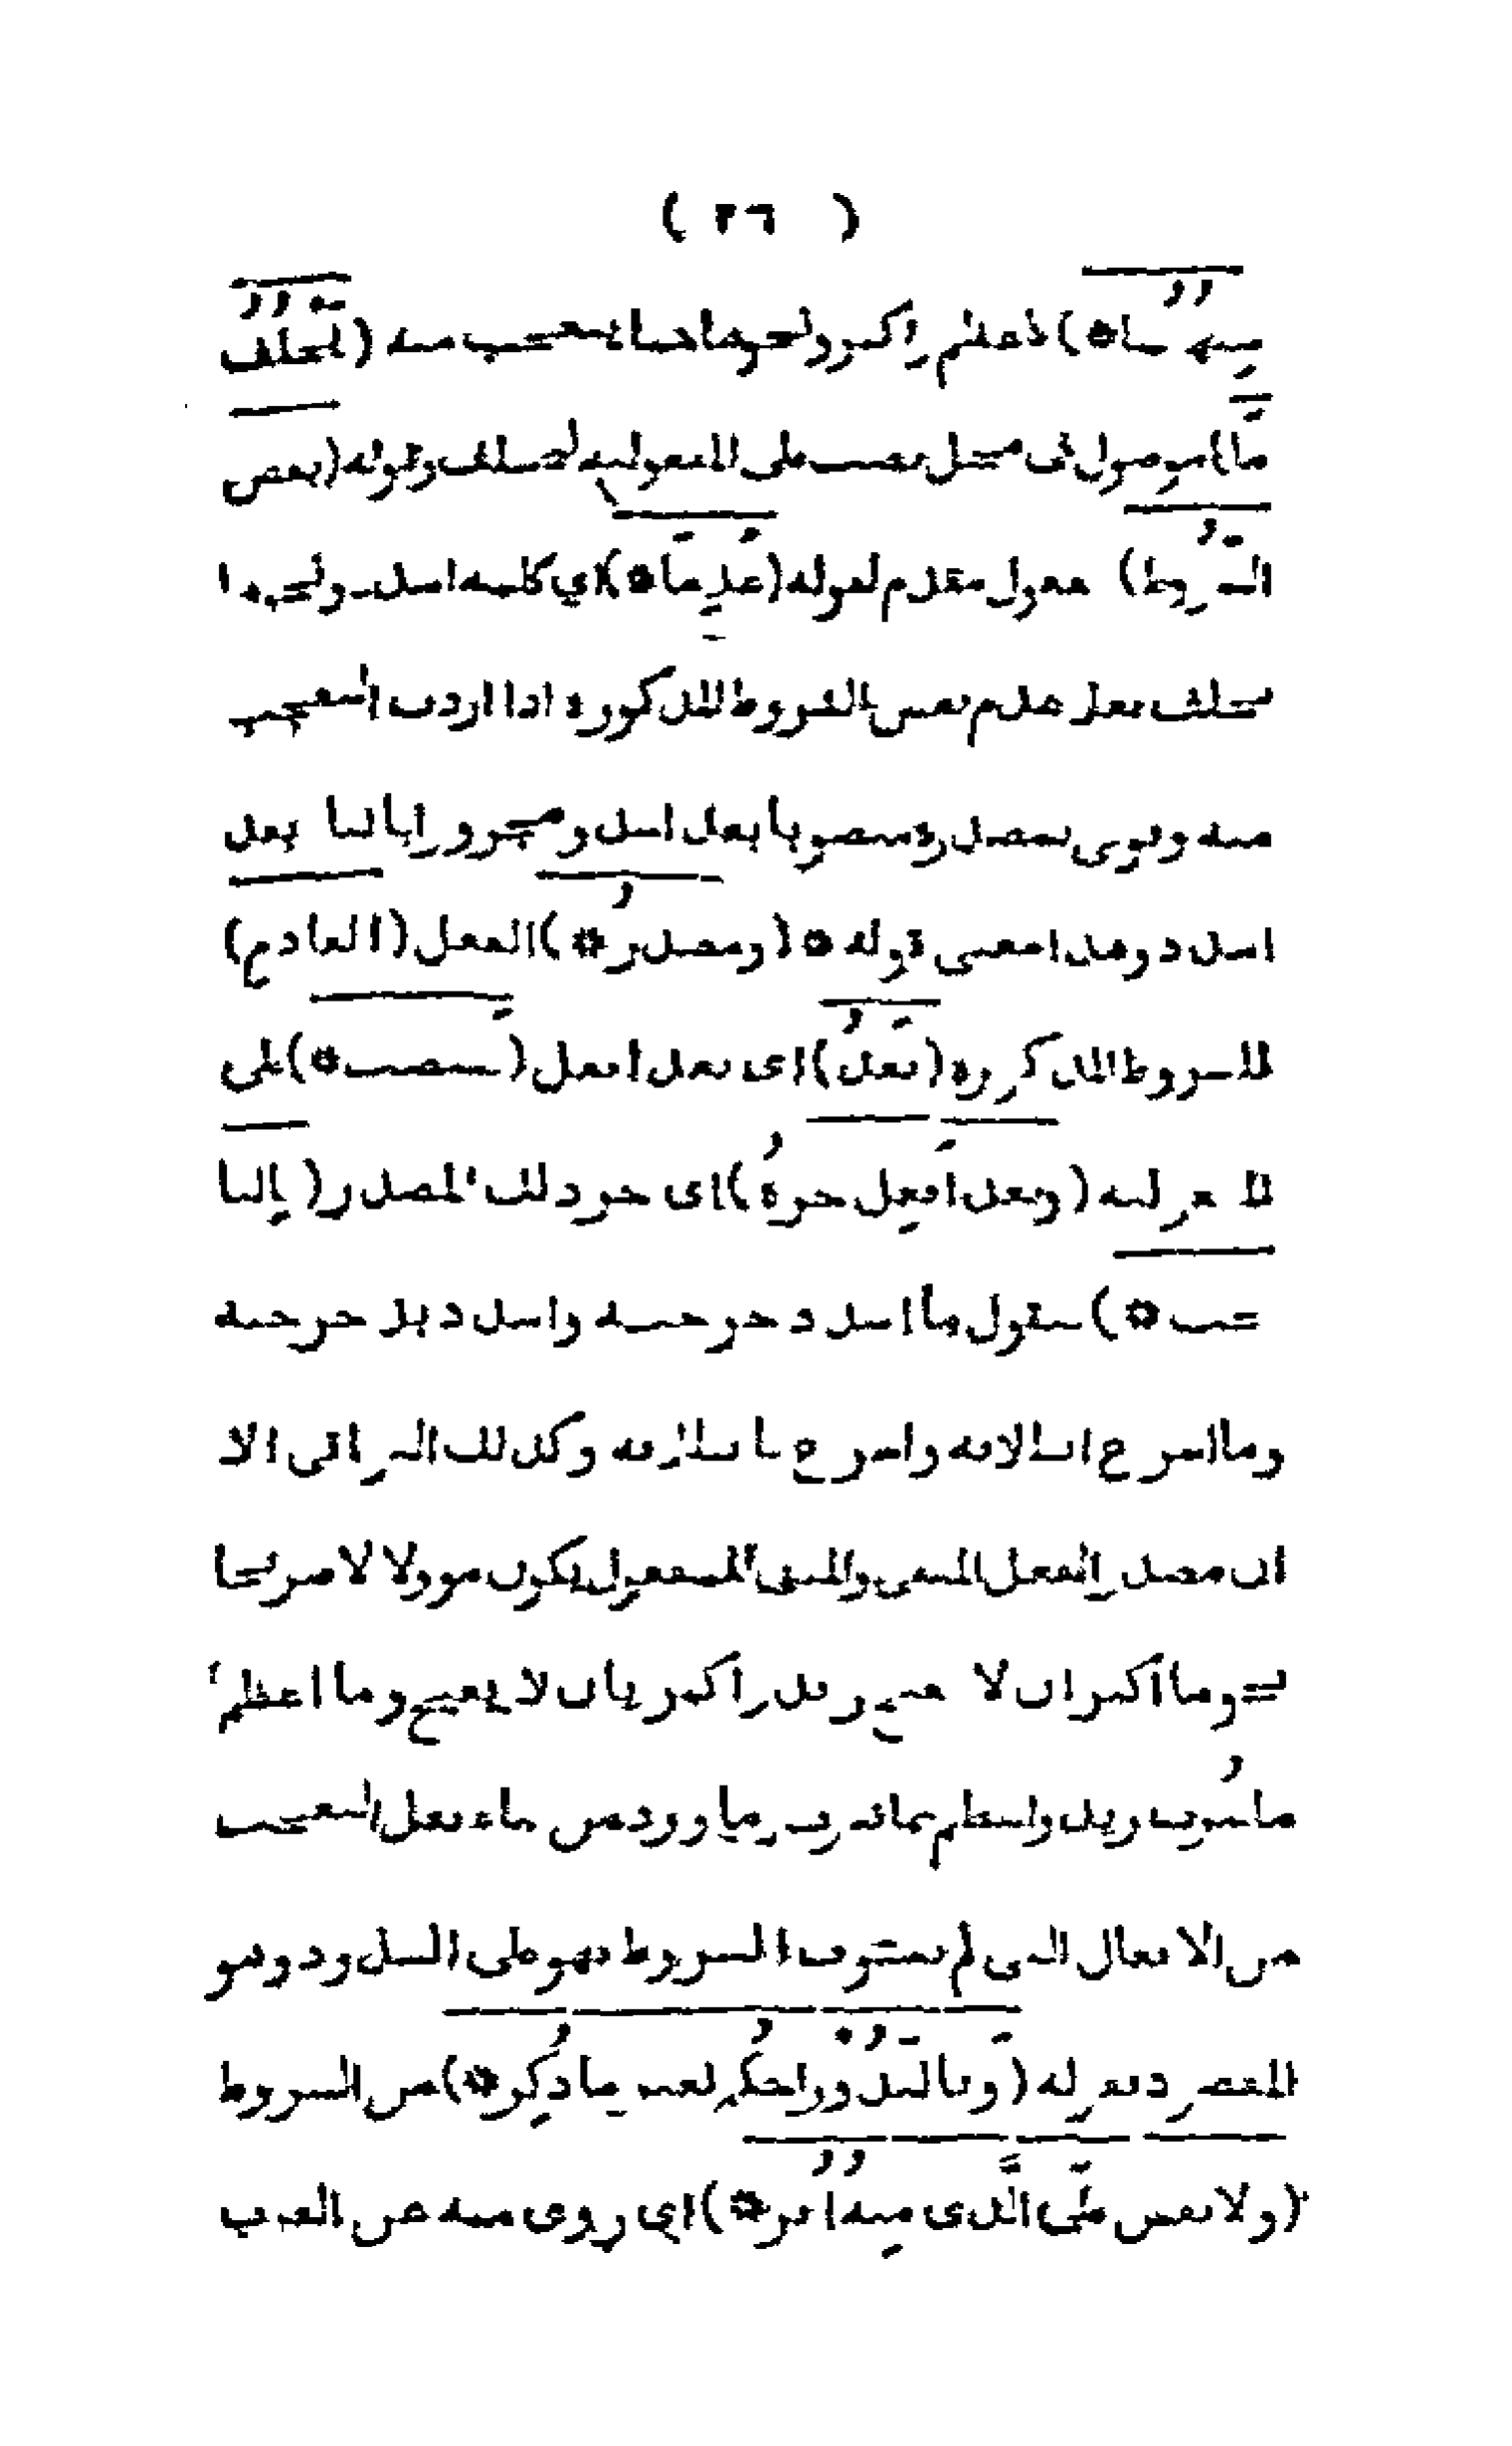 ( ٢٦ )
شبههما*) كاعظم واكبر ونحوهما مما يتعجب منه (يخلف
ما) موصول في محل نصب على المفعولية ليخلف وقوله (بعض
الشروط) مفعول مقدم لقوله (عدما*) اي كلمة اشد ونحوها
تخلف فعل عدم بعض الشروط المذكورة اذا اردت التعجب
منه ويؤتى بمصدره منصوبا بعد اشد ومجرورا بالبا بعد
اشدد وهذا معنى قوله * (ومصدر*) الفعل (العادم)
للشروط المذكورة (بعد) اى بعد افعل (ينتصب*) على
المفعولية (وبعد افعل جره) اى جر ذلك المصدر (بالبا
يجب*) فتقول ما اشد دحرجته واشدد بدحرجته
وما اسرع انطلاقه واسرع بانطلاقه وكذلك البواقى الا
ان مصدر الفعل المنفى والمبنى للمفعول يكون مؤولا لا صريحا
نحو ما اكبر ان لا يعيج زيد واكبر بان لا يعيج وما اعظم
ما ضرب زيد واعظم بما ضرب وما ورد من بناء فعل التعجب
من الافعال التى لم تستوف الشروط فهو على الشذوذ وهو
المقصود بقوله (وبالندور احكم لغير ما ذكر*) من الشروط
(ولا تقس على الذى منه اثر*) اي روى منه عن العرب